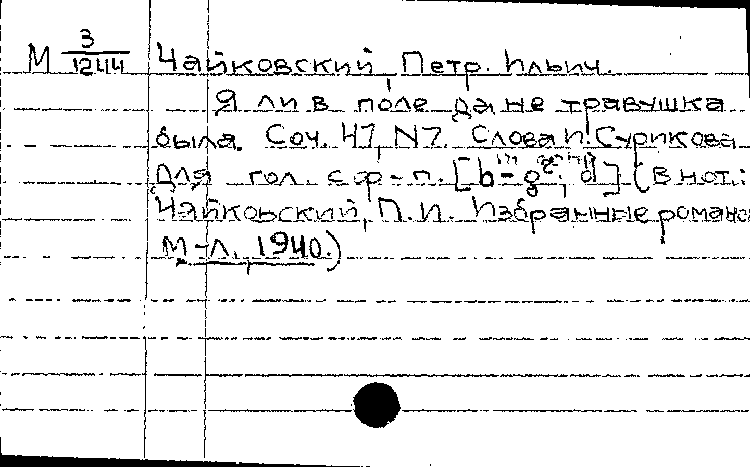 М 3/1244 Чайковский, Петр Ильич.
Я ли в поле да не травушка
была. Соч. 47, N7. Слова И. Сурикова
Для гол. с ф-п. [b- g; d] (В нот.:
Чайковский, П.И. Избранные романс
М-Л., 1940.)